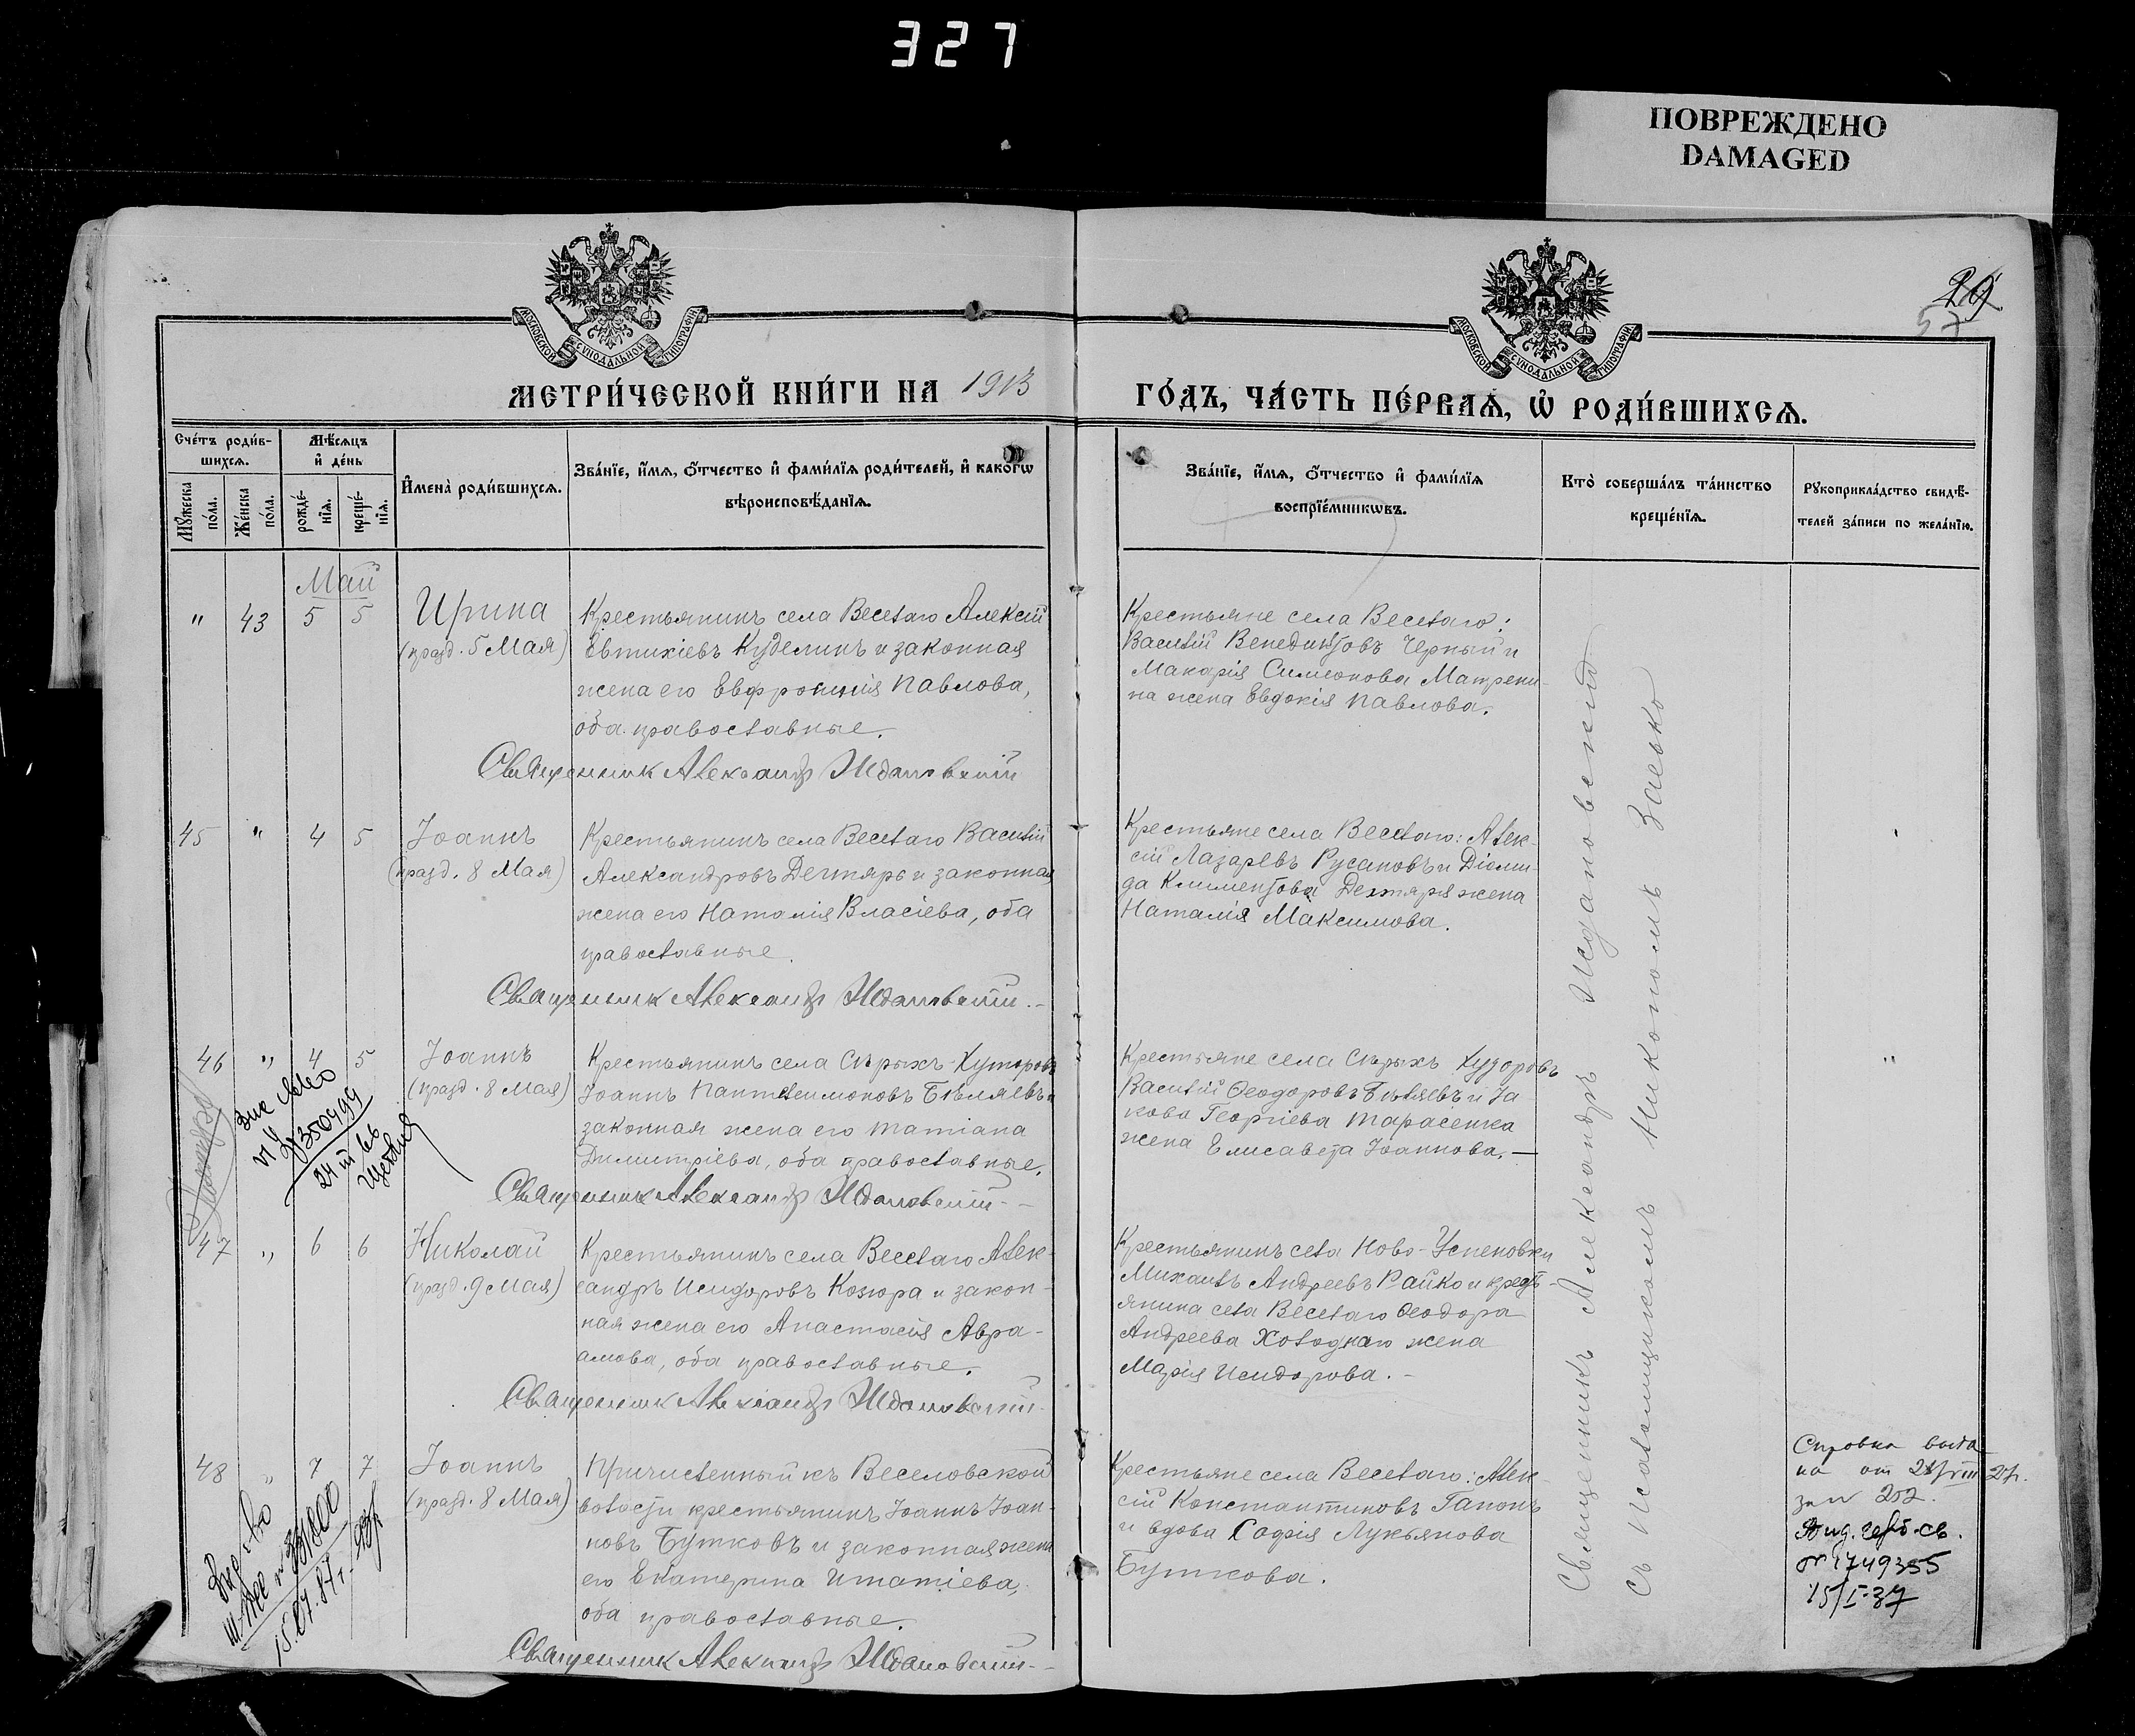 327
ПОВРЕЖДЕНО
DAMAGED
МОСКОВСКОЙ СѴНОДАЛЬНОЙ ТИПОГРАФІИ
МОСКОВСКОЙ СѴНОДАЛЬНОЙ ТИПОГРАФІИ
29
57
МЕТРИ́ЧЕСКОЙ КНИ́ГИ НА 1913
ГО́ДЪ, ЧА́СТЬ ПЕ́РВАѦ, Ѡ҆ РОДИ́ВШИХСѦ.
Сче́тъ роди́в-
шихсѧ.
Мѣ́сѧцъ
и҆ де́нь
Мꙋ́жеска
по́ла.
Же́нска
по́ла.
рожде́-
нїѧ.
креще́-
нїѧ.
И҆мена̀ роди́вшихсѧ.
Зва́нїе, и҆́мѧ, ѻ҆́тчество и҆ фами́лїѧ роди́телей, и҆ како́гѡ
вѣроисповѣ́данїѧ.
Зва́нїе, и҆́мѧ, ѻ҆́тчество и҆ фами́лїѧ
воспрїе́мникѡвъ.
Кто̀ соверша́лъ та́инство
креще́нїѧ.
Рꙋкоприкла́дство свидѣ́-
телей за́писи по жела́нїю.
Май
" 43 5 5 Ирина
(празд. 5 Мая)
Крестьянинъ села Веселаго Алексій
Евтихіевъ Куделинъ и законная
жена его Евфросинія Павлова,
оба православные.
Священник Александр Ждановский
Крестьяне села Веселаго:
Василій Венедиктовъ Черный и
Макарія Симеонова Матрени-
на жена Евдокія Павлова.
45 " 4 5 Іоаннъ
(празд. 8 Мая)
Крестьянинъ села Веселаго Василій
Александровъ Дегтярь и законная
жена его Наталія Власіева, оба
православные.
Священник Александр Ждановский.-
Крестьяне села Веселаго: Алек-
сій Лазаревъ Русановъ и Діоми-
да Климентова Дегтяря жена
Наталія Максимова.
46 " 4 5 Іоаннъ
(празд. 8 Мая)
Крестьянинъ села Сѣрыхъ-Хуторовъ
Іоаннъ Пантелеимоновъ Бѣляевъ и
законная жена его Татіана
Димитріева, оба православные.
Священник Александр Ждановский-
Крестьяне села Сѣрыхъ Хуторовъ
Василій Ѳеодоровъ Бѣляевъ и Іа-
кова Георгіева Тарасенка
жена Елисавета Іоаннова.—
"
47 " 6 6 Николай
(празд. 9 Мая)
Крестьянинъ села Веселаго Алек-
сандръ Исидоровъ Козюра и закон-
ная жена его Анастасія Авра-
амова, оба православные.
Священник Александр Ждановский-
Крестьянинъ села Ново-Успеновки
Михаилъ Андреевъ Райко и кресть-
янина села Веселаго Ѳеодора
Андреева Холоднаго жена
Марія Исидорова.-
48 " 7 7 Іоаннъ
(празд. 8 Мая)
Причисленный къ Веселовской
волости крестьянинъ Іоаннъ Іоан-
новъ Бутковъ и законная жена
его Екатерина Игнатіева,
оба православные.
Священник Александр Ждановский-
Крестьяне села Веселаго: Алек-
сій Константиновъ Гапонъ
и вдова Софія Лукьянова
Буткова.
Священникъ Александръ Ждановскій
съ Псаломщикомъ Никономъ Заенко
Справка выда-
на от
252.
№ 1749355
15/I-37